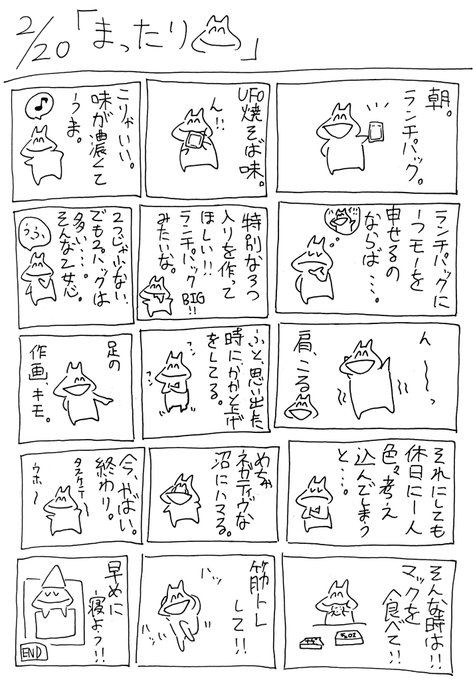 2/20「まったり」
朝。
ランチパック。
UFO焼そば味。
ん!!
こりゃいい。
味が濃くて
うま。
ランチパックに
一つモノを
申せるの
ならば…。
特別な3つ
入りを作って
ほしい!!
ランチパックBIG!!
みたいな。
2つじゃ少ない、
でも2パックは
多い…。
そんな乙女心。
うふふ
ん〜〜っ
肩、こる
ふと、思い出した
時にかかと上げ
をしてる。
足の
作画、キモ。
それにしても
休日に一人
色々考え
込んでしまう
と…。
めちゃ
ネガティヴな
沼にハマる。
今、やばい。
終わり。
タスケテー
ウホ〜
そんな時は!!
マックを
食べて!!
筋トレ
して!!
ハッ
ハッ
早めに
寝よう!!
END